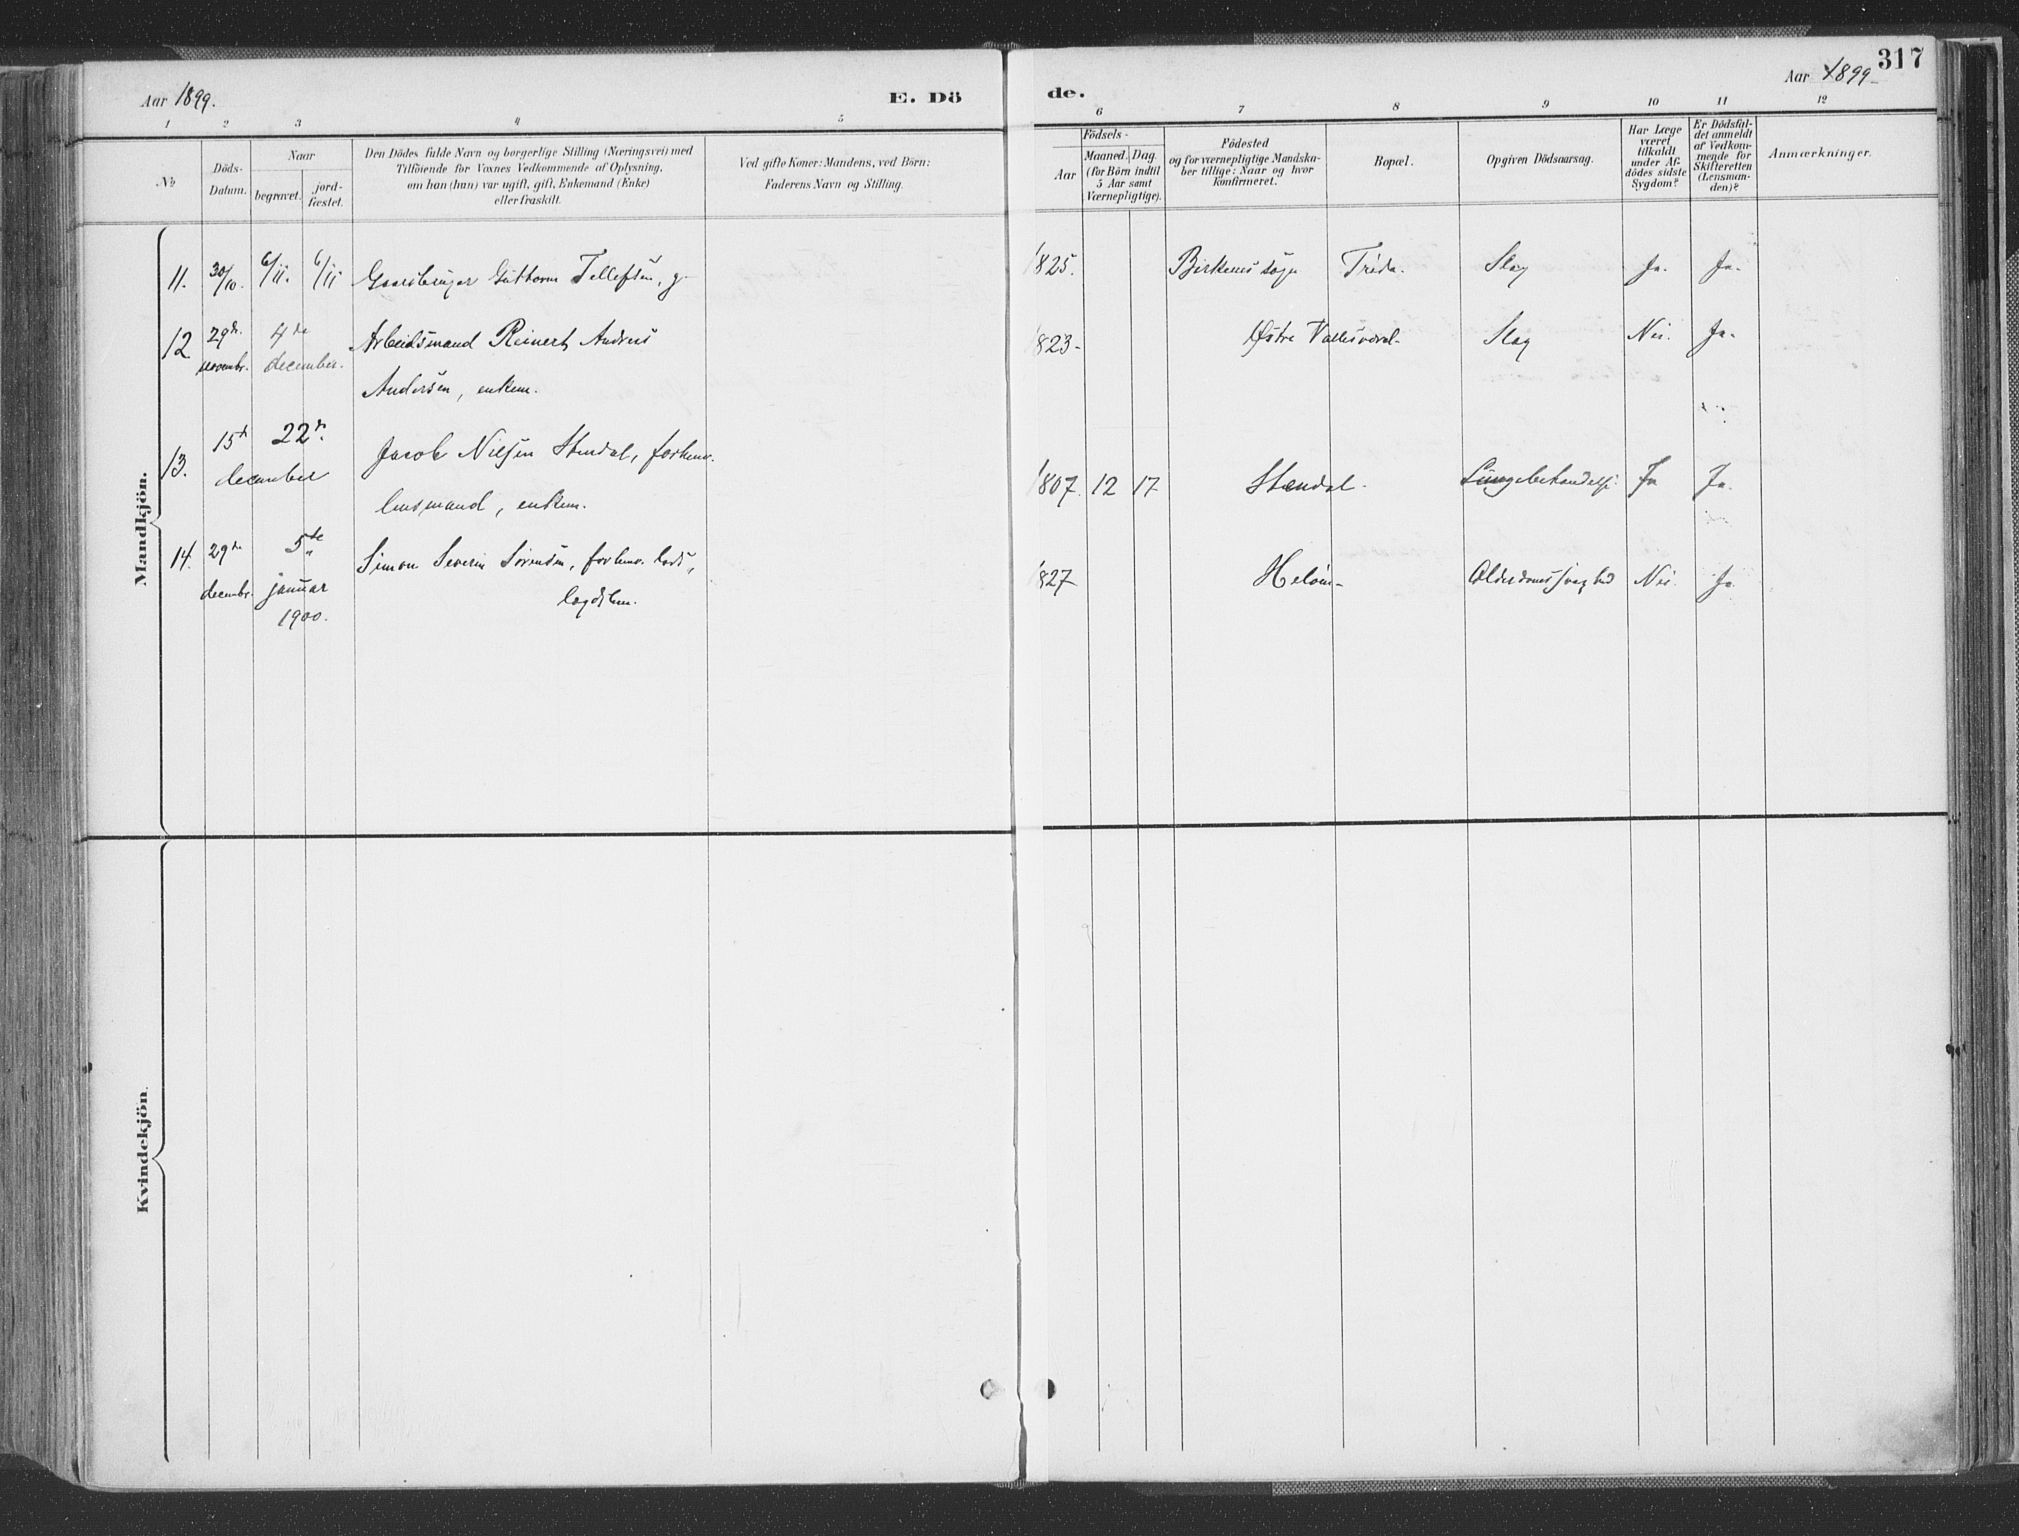 317
Aar 1899.
E. Dö
de.
Aar 1899
1 2 3 4 5 6 7 8 9 10 11 12
No
Döds-
Datum.
Naar
begravet.
jord-
fæstet.
Den Dödes fulde Navn og borgerlige Stilling (Næringsvei) med
Tilföiende for Voxnes Vedkommende af Oplysning,
om han (hun) var ugift, gift, Enkemand (Enke)
eller fraskilt.
Ved gifte Koner: Mandens, ved Börn:
Faderens Navn og Stilling.
Födsels-
Aar
Maaned. Dag.
(for Börn indtil
5 Aar samt
Værnepligtige).
Födested
og for værnepligtige Mandska-
ber tillige: Naar og hvor
konfirmeret.
Bopæl.
Opgiven Dödsaarsag.
Har Læge
været
tilkaldt
under Af-
dödes sidste
Sygdom?
Er Dödsfal-
det anmeldt
af Vedkom-
mende for
Skifteretten
(Lensman-
den)?
Anmærkninger.
Mandkjön.
11. 30/10. 6/11. 6/11 Gaardbruger Guttorm Tellefsen, g. 1825. Birkenes sogn Slag Ja. Ja.
12 29de 4de Arbeidsmand Reinert Andreas 1823 Østre Vallesverd Slag Nei. Ja.
novembr. december.
Andersen, enkem.
13. 15d 22de Jacob Nielsen Stendal, forhenv. 1807. 12 17 Stendal Ja Ja.
december
lensmand, enkem.
14. 29de 5te Simon Severin Sørensen, forhenv. lods, 1827 Helöen Alderdomssvaghed Nei. Ja
decembr. januar
1900.
Kvindekjön.